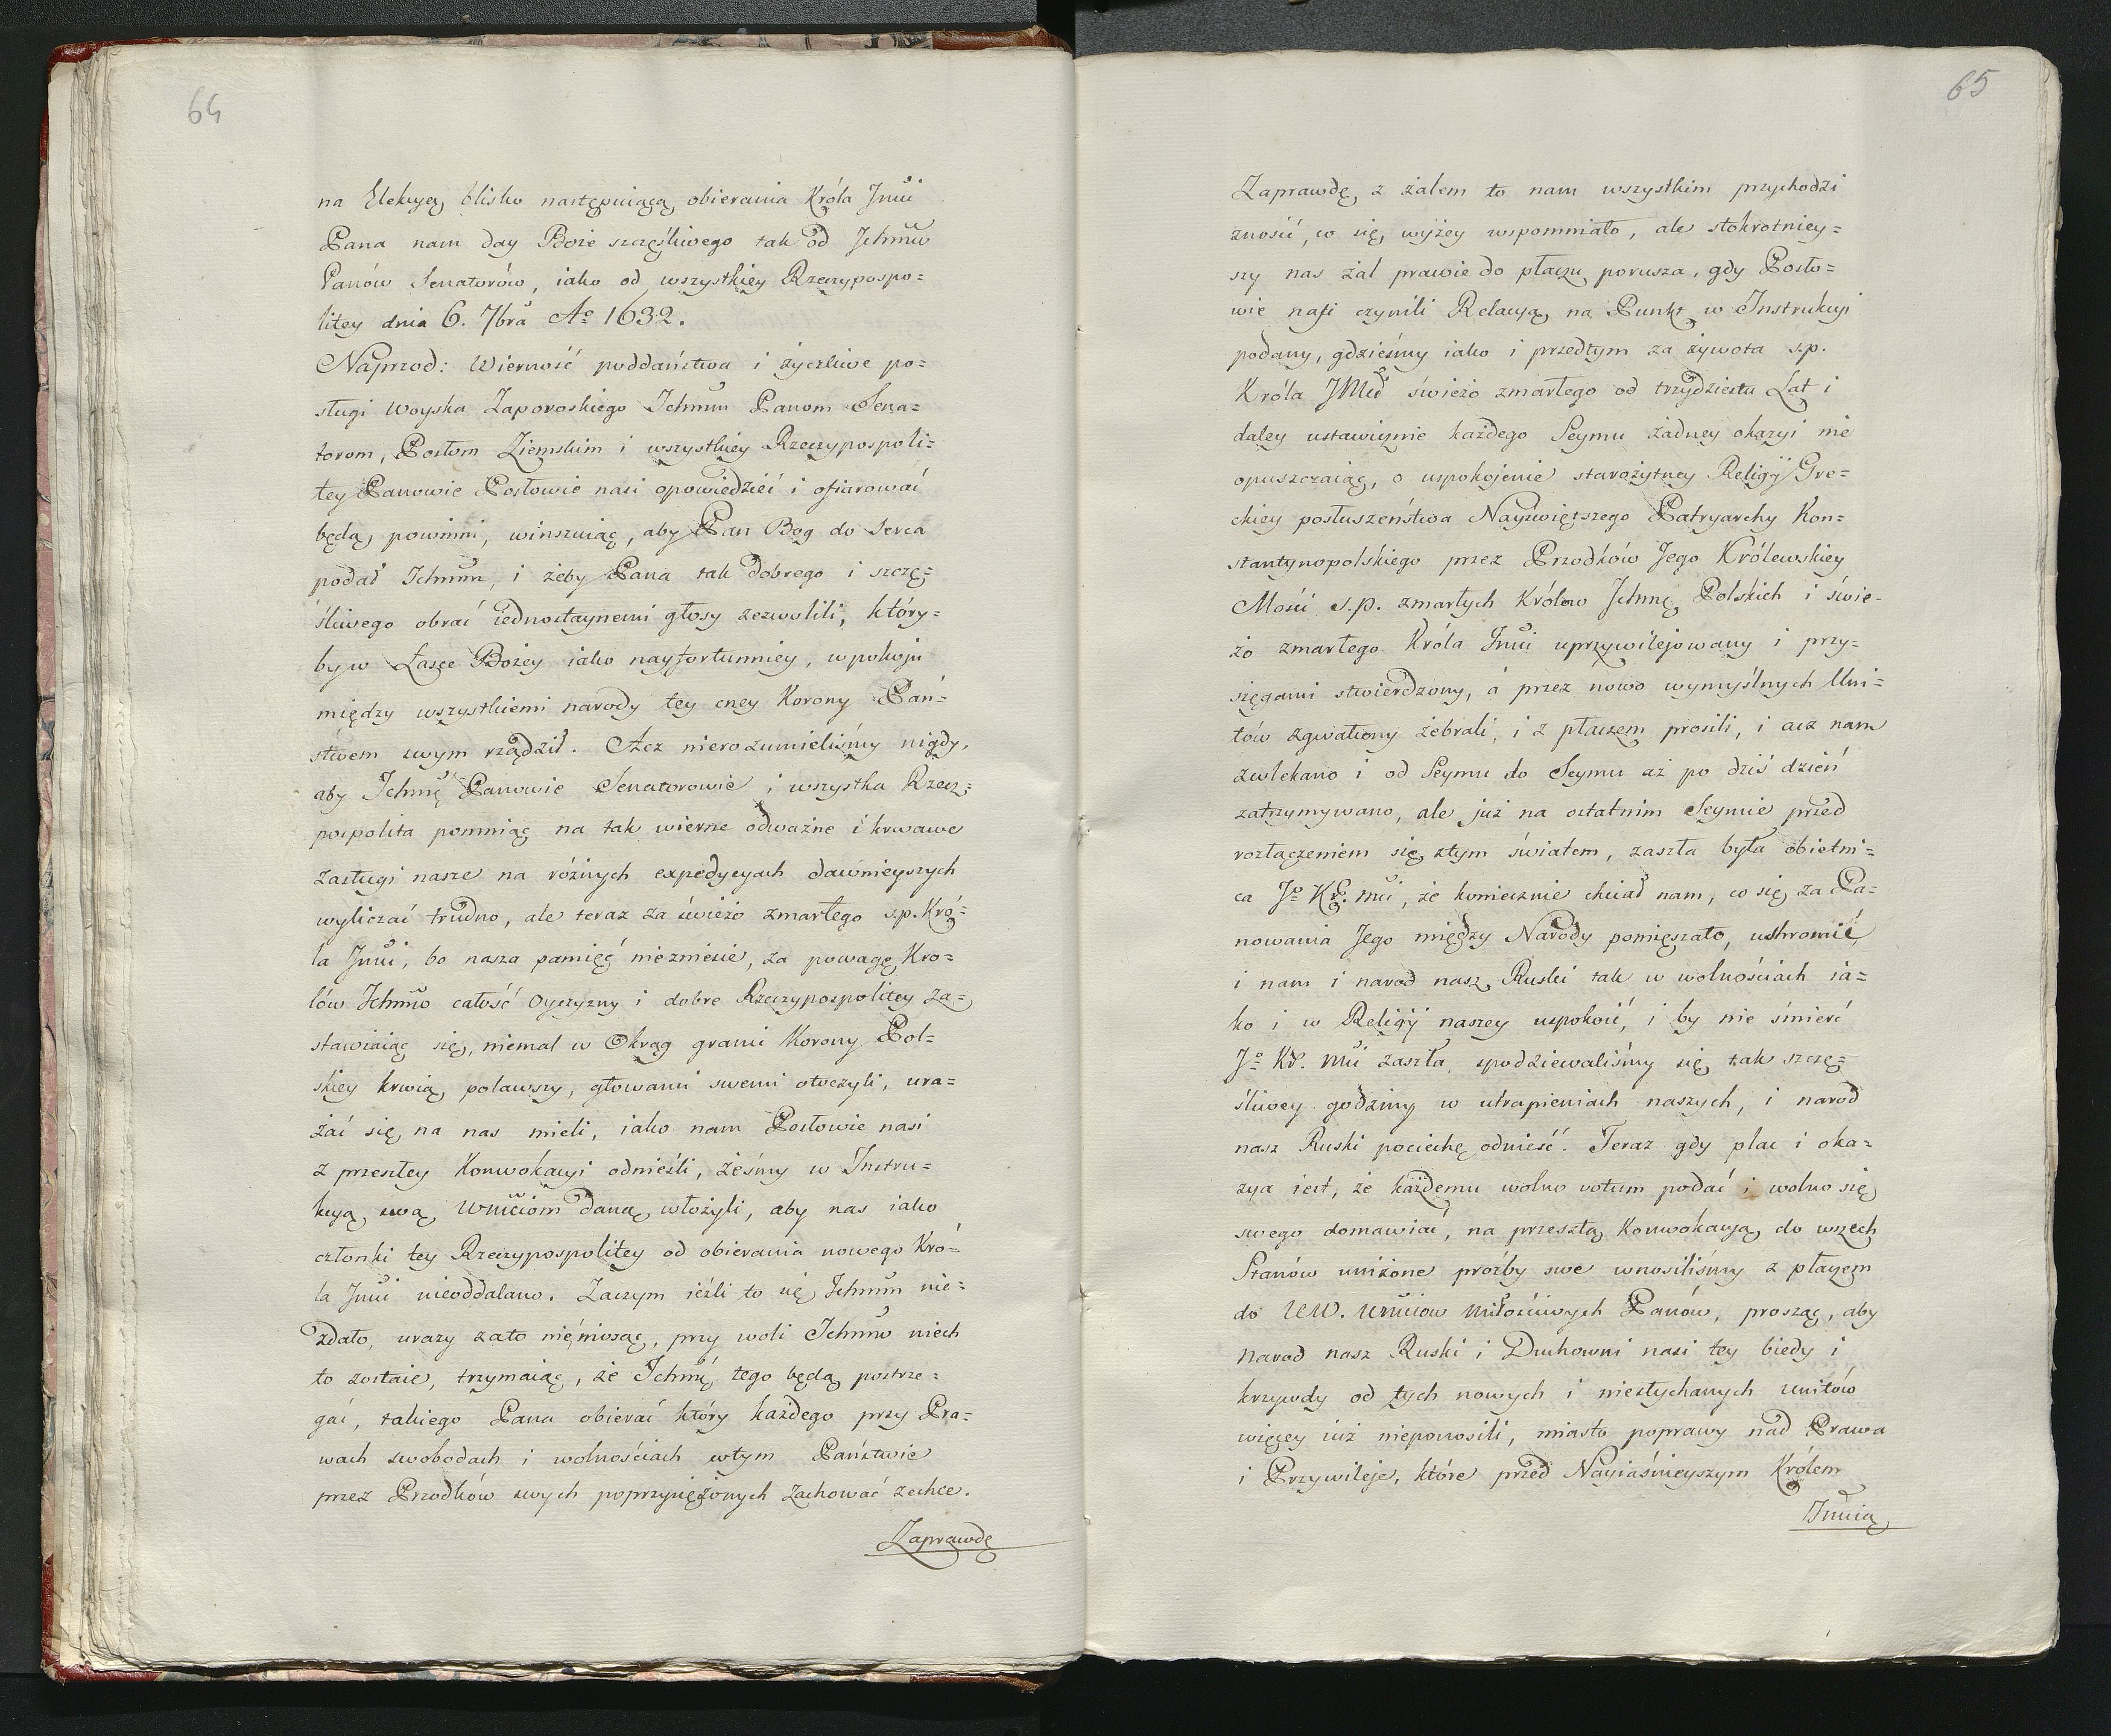 64
na Elekcyą blisko następuiącą obierania Króla Jmći
Pana nam day Boże szczęśliwego tak od Ichmćw
Panów Senatorów, iako od wszystkiey Rzeczypospo=
litey dnia 6. 7bra Ao 1632.
Naprzod: Wierność poddaństwa i życzliwe po=
sługi Woyska Zaporoskiego Ichmm Panom Sena=
torom, Posłom Ziemskim i wszystkiey Rzeczypospoli=
tey Panowie Posłowie nasi opowiedzieć i ofiarować
będą powinni, winszuiąc, aby Pan Bog do Serca
podał Ichmm, i żeby Pana tak dobrego i szczę=
śliwego obrać iednostaynemi głosy zezwolili, który=
by w Łasce Bożey iako nayfortunniey, w pokoju
między wszystkiemi narody tey cney Korony Pań=
stwem swym rządził. Acz nierozumieliśmy nigdy,
aby Ichmć Panowie Senatorowie i wszystka Rzecz=
pospolita pomniąc na tak wierne odważne i krwawe
zasługi nasze na różnych expedycyach dawnieyszych
wyliczać trudno, ale teraz za świeżo zmarłego s.p. Kró=
la Jmći, bo nasza pamięć niezniesie, za powagę Kro=
lów Ichmćw całość Oyczyzny i dobre Rzeczypospolitey za=
stawiaiąc się, niemal w Okrąg granic Korony Pol=
skiey krwią polawszy, głowami swemi otoczyli, ura=
żać się na nas mieli, iako nam Posłowie nasi
z przeszłey Konwokacyi odnieśli, żeśmy w Instru=
kcyą swą Wmćiom daną włożyli, aby nas iako
członki tey Rzeczypospolitey od obierania nowego Kró=
la Jmći nieoddalano. Zaczym ieźli to się Ichmm nie=
zdało, urazy zato nieniosąc, przy woli Ichmćw niech
to zostaie, trzymaiąc, że Ichmć tego będą postrze=
gać, takiego Pana obierać który każdego przy Pra=
wach swobodach i wolnościach wtym Państwie
przez Przodków swych poprzysiężonych zachować zechce.
Zaprawdę
65
Zaprawdę z żalem to nam wszystkim przychodzi
znosić, co się wyżey wspomniało, ale stokrotniey=
szy nas żal prawie do płaczu porusza, gdy Posło=
wie nasi czynili Relacyą na Punkt w Instrukcyi
podany, gdzieśmy iako i przedtym za żywota s.p.
Króla JMći świeżo zmarłego od trzydziestu Lat i
daley ustawicznie każdego Seymu żadney okazyi nie
opuszczaiąc, o uspokojenie starożytney Religij Gre=
ckiey posłuszeństwa Nayświętszego Patryarchy Kon=
stantynopolskiego przez Przodków Jego Królewskiey
Mości s.p. zmarłych Królow Ichmć Polskich i świe-
żo zmarłego Króla Jmći uprzywilejowany i przy=
sięgami stwierdzony, a przez nowo wymyślnych Uni=
tów zgwałcony żebrali, i z płaczem prosili, i acz nam
zwlekano i od Seymu do Seymu aż po dziś dzień
zatrzymywano, ale już na ostatnim Seymie przed
rozłączeniem się ztym światem, zaszła była obietni=
ca Jo Kr. mći, że koniecznie chciał nam, co się za Pa=
nowania Jego między Narody pomięszało, uskromić
i nam i narod nasz Ruski tak w wolnościach ia=
ko i w Religij naszey uspokoić, i by nie śmierć
Jo Kr. Mći zaszła, spodziewaliśmy się tak szczę=
śliwey godziny w utrapieniach naszych, i narod
nasz Ruski pociechę odnieść. Teraz gdy plac i oka=
zya iest, że każdemu wolno votum podać i wolno się
swego domawiać, na przeszłą Konwokacyą do wszech
Stanów uniżone prośby swe wnosiliśmy z płaczem
do WW. Wmćiow Miłościwych Panów, prosząc, aby
Narod nasz Ruski i Duchowni nasi tey biedy i
krzywdy od tych nowych i niesłychanych unitów
więcey iuż nieponosili, miasto poprawy nad Prawa
i Przywileje, które przed Nayiaśnieyszym Królem
Jmcią